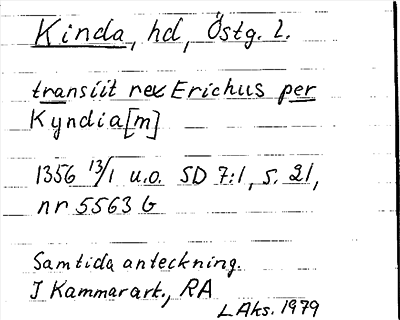 Kinda, hd, Östg. l.
transiit rex Erichus per
Kyndia[m]
1356 13/1 u.o. SD 7:1, s. 21,
nr 5563 b
Samtida anteckning.
I Kammarark., RA
L Aks. 1979